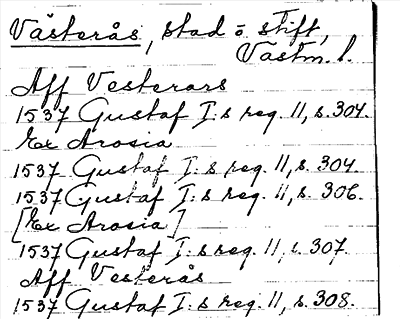 Västerås, stad o. stift,
Västm. l.
Aff Vesterars
1537 Gustaf I:s reg. 11, s. 304.
Ex Arosia
1537 Gustaf I:s reg. 11, s. 304.
1537 Gustaf I:s reg. 11, s. 306.
[Ex Arosia]
1537 Gustaf I:s reg. 11, s. 307.
Aff Vesterås
1537 Gustaf I:s reg. 11, s. 308.